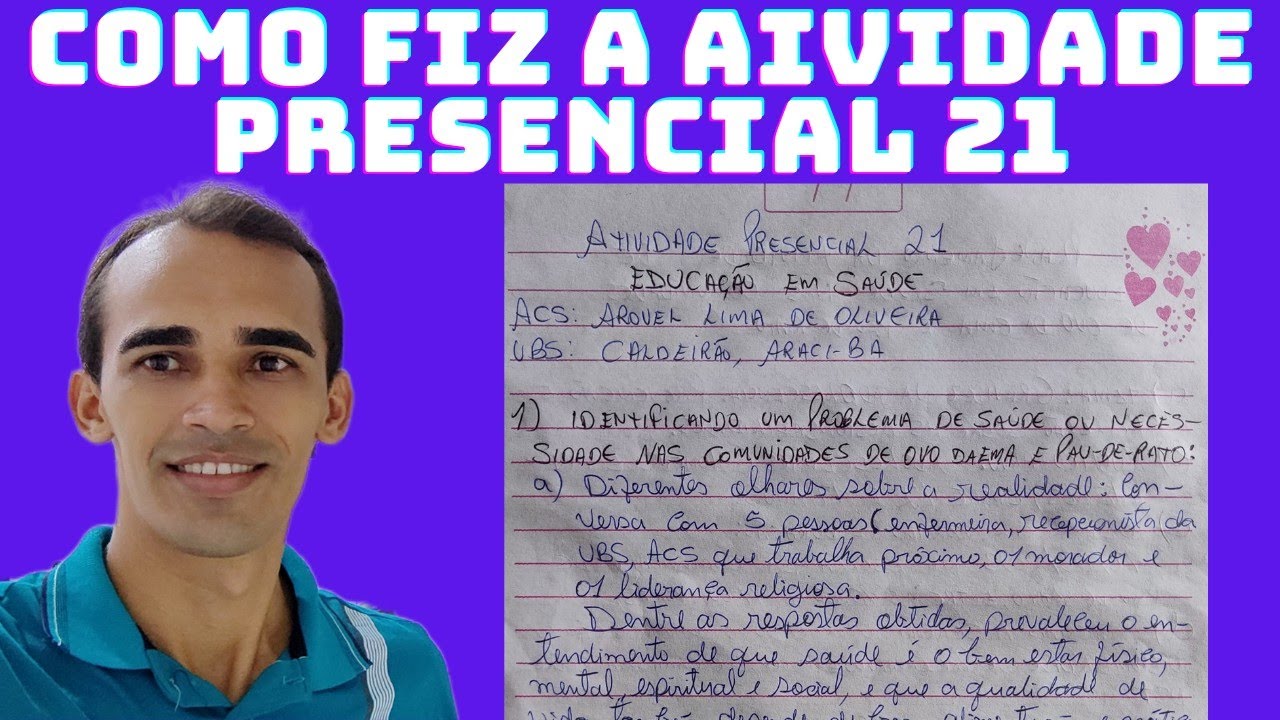 COMO FIZ A AIVIDADE
PRESENCIAL 21
ATIVIDADE PRESENCIAL 21
EDUCAÇÃO EM SAÚDE
ACS: AROVEL LIMA DE OLIVEIRA
UBS: CALDEIRÃO, ARACI-BA
1) IDENTIFICANDO UM PROBLEMA DE SAÚDE OU NECES-
SIDADE NAS COMUNIDADES DE OVO DAEMA E PAU-DE-RATO:
a) Diferentes olhares sobre a realidade: Con-
versa com 5 pessoas (enfermeira, recepcionista da
UBS, ACS que trabalha próximo, 01 morador e
01 liderança religiosa.
Dentre as respostas obtidas, prevaleceu o en-
tendimento de que saúde é o bem estar físico,
mental, espiritual e social, e que a qualidade de